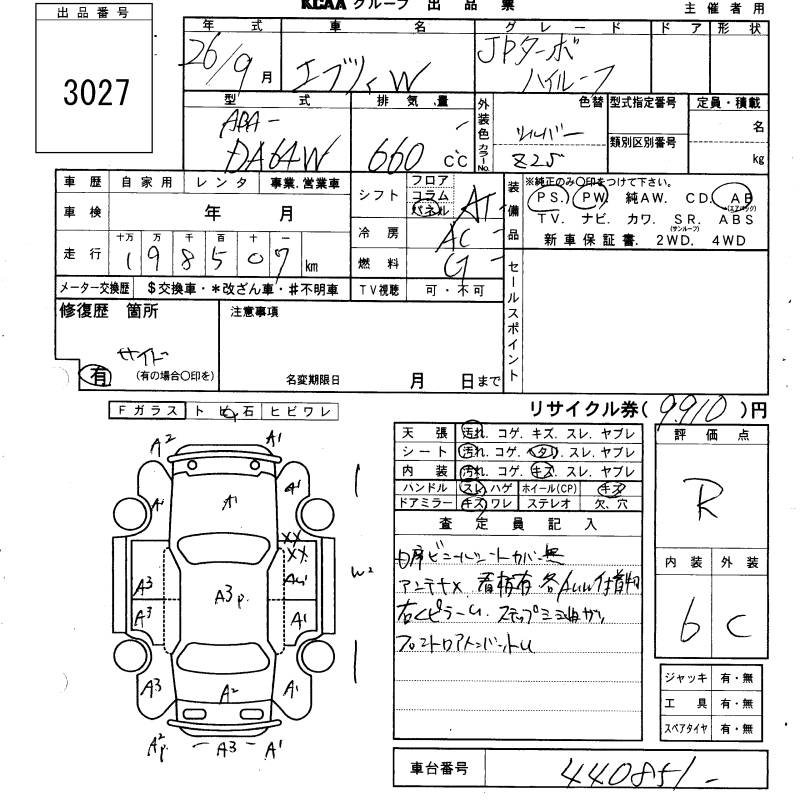 KCAA グループ 出品票
主催者用
出品番号
3027
年式 車名 グレード ドア 形状
26/9月 エブリィW JPターボ ハイルーフ
型式 排気量 外装色 色替 型式指定番号 定員・積載
ABA- DA64W 660 cc シルバー 名
カラーNo. Z2S 類別区別番号 kg
車歴 自家用 レンタ 事業.営業車
車検 年 月
走行 十万 万 千 百 十 一
198507 km
メーター交換歴 $交換車・*改ざん車・#不明車
シフト フロア コラム パネル AT
冷房 AC
燃料 G
TV視聴 可・不可
装備品 ※純正のみ〇印をつけて下さい。
PS.) PW. 純AW. CD. AB (エアバッグ)
TV. ナビ. カワ. SR. ABS
(サンルーフ)
新車保証書. 2WD. 4WD
セールスポイント
修復歴 箇所
サイド
有 (有の場合〇印を)
注意事項
名変期限日 月 日まで
リサイクル券( 9910 )円
Fガラス トビ石 ヒビワレ
天張 汚れ. コゲ. キズ. スレ. ヤブレ
シート 汚れ. コゲ. ヘタリ. スレ. ヤブレ
内装 汚れ. コゲ. キズ. スレ. ヤブレ
ハンドル スレ. ハゲ ホイール(CP) キズ
ドアミラー キズ. ワレ ステレオ 欠. 穴
評価点
R
査定員記入
アンテナX 看板有
右Cピラーu. ステップ
フロントロアメンバーu
内装 外装
6 C
ジャッキ 有・無
工具 有・無
スペアタイヤ 有・無
A2 A1
A1 A1 A1
XX
XX
A3 A3P. AU1 W2
A3 A1
A3 A2 A1
A2P. -A3- A1
車台番号 440851-